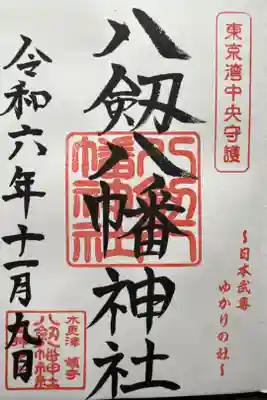 東京湾中央守護
〜日本武尊
ゆかりの社〜
八剱八幡神社
八剱八
幡神社
令和六年十一月九日
木更津 鎮守
八剱八幡神社